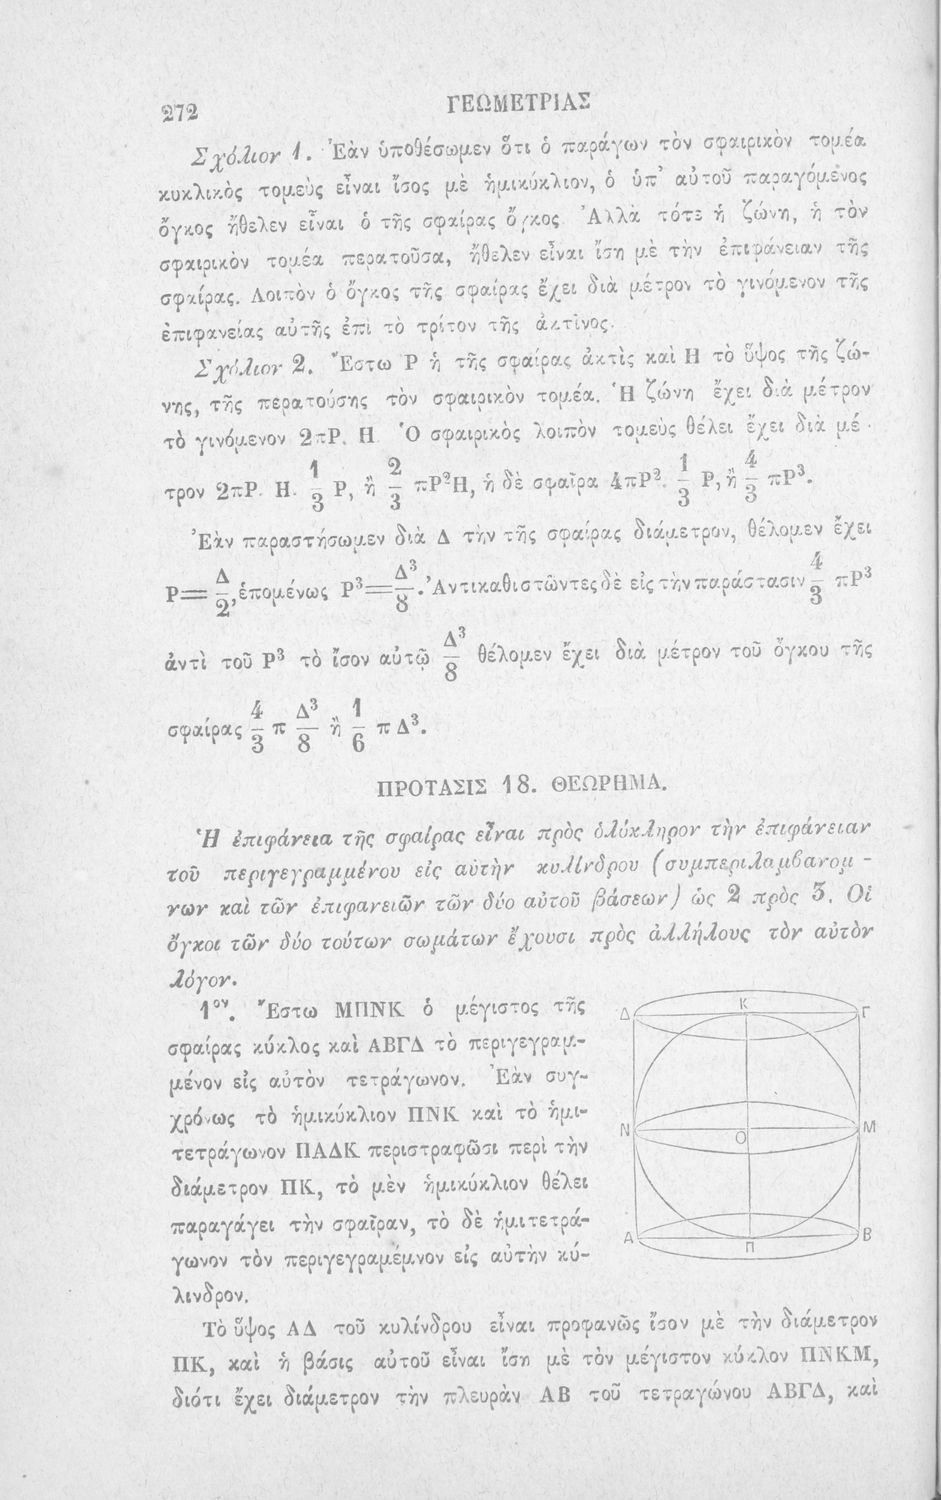 272
ΓΕΩΜΕΤΡΙΑΣ
Σχόλιον 1. Ἐὰν ὑποθέσωμεν ὅτι ὁ παράγων τὸν σφαιρικὸν τομέα
κυκλικὸς τομεὺς εἶναι ἴσος μὲ ἡμικύκλιον, ὁ ὑπ' αὐτοῦ παραγόμενος
ὄγκος ἤθελεν εἶναι ὁ τῆς σφαίρας ὄγκος Ἀλλὰ τότε ἡ ζώνη, ἡ τὸν
σφαιρικὸν τομέα περατοῦσα, ἤθελεν εἶναι ἴση μὲ τὴν ἐπιφάνειαν τῆς
σφαίρας. Λοιπὸν ὁ ὄγκος τῆς σφαίρας ἔχει διὰ μέτρον τὸ γινόμενον τῆς
ἐπιφανείας αὐτῆς ἐπὶ τὸ τρίτον τῆς ἀκτῖνος.
Σχόλιον 2. Ἔστω Ρ ἡ τῆς σφαίρας ἀκτὶς καὶ Η τὸ ὕψος τῆς ζώ-
νης, τῆς περατούσης τὸν σφαιρικὸν τομέα. Ἡ ζώνη ἔχει διὰ μέτρον
τὸ γινόμενον 2πΡ. Η Ὁ σφαιρικὸς λοιπὸν τομεὺς θέλει ἔχει διὰ μέ-
τρον 2πΡ. Η. 1/3 Ρ, ἢ 2/3 πΡ²Η, ἡ δὲ σφαῖρα 4πΡ². 1/3 Ρ, ἢ 4/3 πΡ³.
Ἐὰν παραστήσωμεν διὰ Δ τὴν τῆς σφαίρας διάμετρον, θέλομεν ἔχει
Ρ=Δ/2, ἑπομένως Ρ³=Δ³/8. Ἀντικαθιστῶντες δὲ εἰς τὴν παράστασιν 4/3 πΡ³
ἀντὶ τοῦ Ρ³ τὸ ἴσον αὐτῷ Δ³/8 θέλομεν ἔχει διὰ μέτρον τοῦ ὄγκου τῆς
σφαίρας 4/3 π Δ³/8 ἢ 1/6 π Δ³.
ΠΡΟΤΑΣΙΣ 18. ΘΕΩΡΗΜΑ.
Ἡ ἐπιφάνεια τῆς σφαίρας εἶναι πρὸς ὁλόκληρον τὴν ἐπιφάνειαν
τοῦ περιγεγραμμένου εἰς αὐτὴν κυλίνδρου (συμπεριλαμβανομ-
νων καὶ τῶν ἐπιφανειῶν τῶν δύο αὐτοῦ βάσεων) ὡς 2 πρὸς 3. Οἱ
ὄγκοι τῶν δύο τούτων σωμάτων ἔχουσι πρὸς ἀλλήλους τὸν αὐτὸν
λόγον.
1ον. Ἔστω ΜΠΝΚ ὁ μέγιστος τῆς
σφαίρας κύκλος καὶ ΑΒΓΔ τὸ περιγεγραμ-
μένον εἰς αὐτὸν τετράγωνον. Ἐὰν συγ-
χρόνως τὸ ἡμικύκλιον ΠΝΚ καὶ τὸ ἡμι-
τετράγωνον ΠΑΔΚ περιστραφῶσι περὶ τὴν
διάμετρον ΠΚ, τὸ μὲν ἡμικύκλιον θέλει
παραγάγει τὴν σφαῖραν, τὸ δὲ ἡμιτετρά-
γωνον τὸν περιγεγραμέμνον εἰς αὐτὴν κύ-
λινδρον.
Δ Κ Γ
Ν Ο Μ
Α Π Β
Τὸ ὕψος ΑΔ τοῦ κυλίνδρου εἶναι προφανῶς ἴσον μὲ τὴν διάμετρον
ΠΚ, καὶ ἡ βάσις αὐτοῦ εἶναι ἴση μὲ τὸν μέγιστον κύκλον ΠΝΚΜ,
διότι ἔχει διάμετρον τὴν πλευρὰν ΑΒ τοῦ τετραγώνου ΑΒΓΔ, καὶ